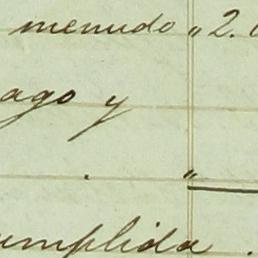 menudo " 2.
ago y
. "
umplida .